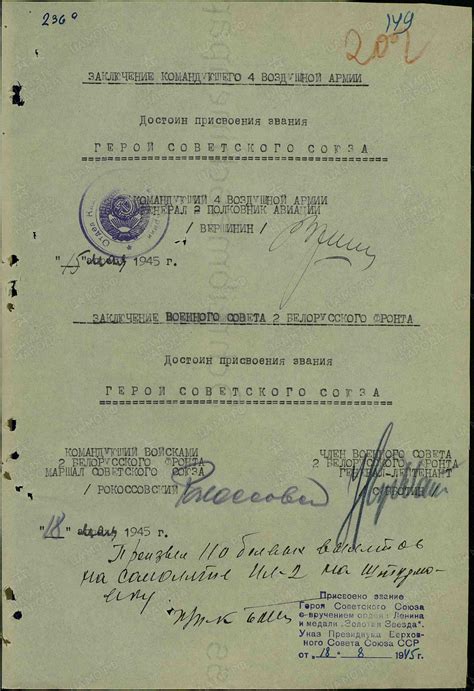 236
149
202
ЗАКЛЮЧЕНИЕ КОМАНДУЮЩЕГО 4 ВОЗДУШНОЙ АРМИИ
Достоин присвоения звания
ГЕРОЙ СОВЕТСКОГО СОЮЗА
КОМАНДУЮЩИЙ 4 ВОЗДУШНОЙ АРМИИ
ГЕНЕРАЛ ПОЛКОВНИК АВИАЦИИ
/ ВЕРШИНИН /
"15" 1945 г.
ЗАКЛЮЧЕНИЕ ВОЕННОГО СОВЕТА 2 БЕЛОРУССКОГО ФРОНТА
Достоин присвоения звания
ГЕРОЙ СОВЕТСКОГО СОЮЗА
КОМАНДУЮЩИЙ ВОЙСКАМИ
2 БЕЛОРУССКОГО ФРОНТА
МАРШАЛ СОВЕТСКОГО СОЮЗА
/ РОКОССОВСКИЙ
ЧЛЕН ВОЕННОГО СОВЕТА
2 БЕЛОРУССКОГО ФРОНТА
ГЕНЕРАЛ-ЛЕЙТЕНАНТ
"18" 1945 г.
Произвел 110 боевых вылетов
на самолете Ил-2 на штурмо-
вку.
Присвоено звание
Героя Советского Союза
с вручением ордена Ленина
и медали „Золотая Звезда".
Указ Президиума Верхов-
ного Совета Союза ССР
от "18 - 8 1945 г.